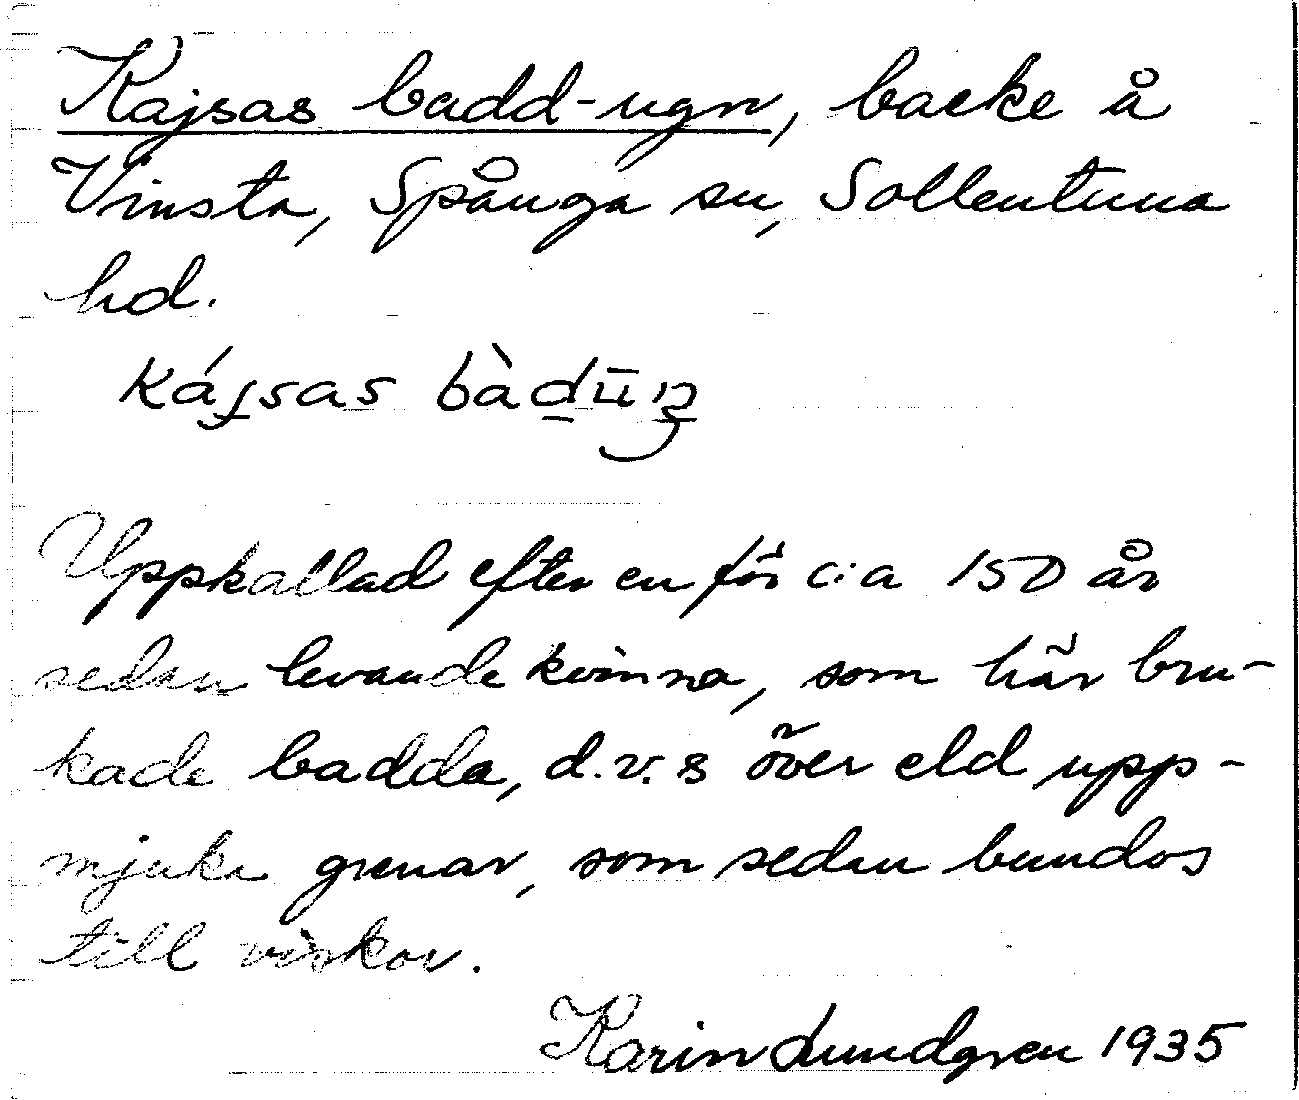 Kajsas badd-ugn, backe å
Vinsta, Spånga sn, Sollentuna
hd.
kájsas bàdūŋ
Uppkallad efter en för c:a 150 år
sedan levande kvinna, som här bru-
kade badda, d.v.s över eld upp-
mjuka grenar, som sedan bundos
till viskor.
Karin Lundgren 1935